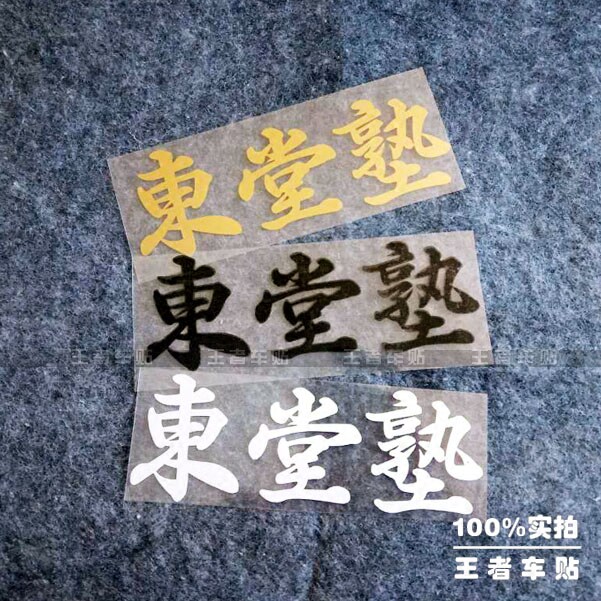 東堂塾
東堂塾
王者车贴 王者车贴 王者车贴 王者车贴
東堂塾
100%实拍
王者车贴